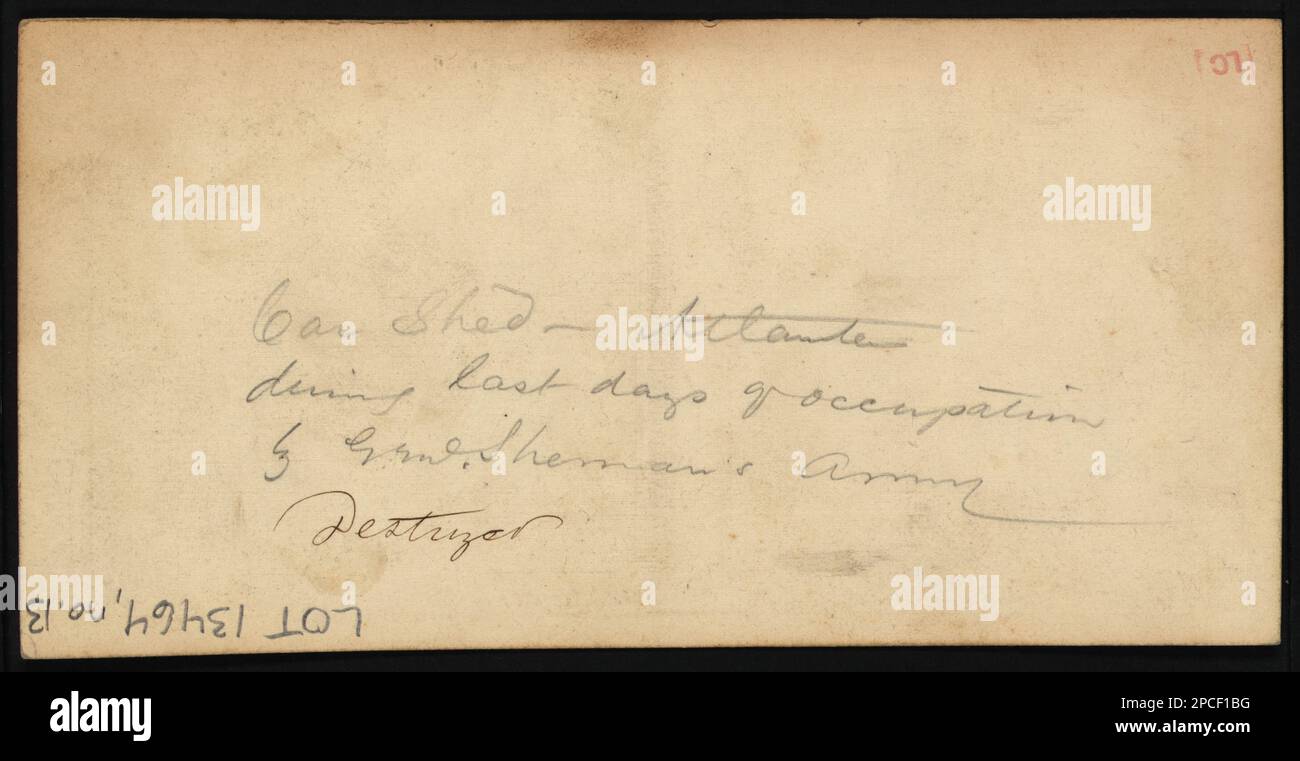 Car Shed - Atlanta
during last days of occupation
by Genl. Sherman's Army
Destroyed
LOT 13464, no. 13
[LC]
alamy
Image ID: 2PCF1BG
www.alamy.com